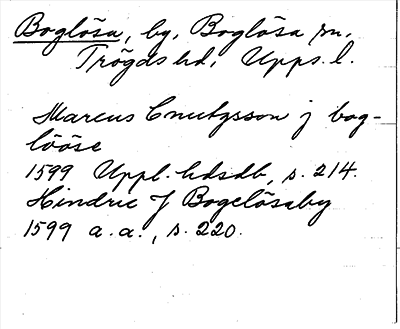 Boglösa, by, Boglösa sn.
Trögds hd, Upps. l.
Marcus Cnutzsson j bog-
lööse
1599 Uppl. hdsdb, s. 214.
Hindric J Bogelösaby
1599 a.a., s. 220.